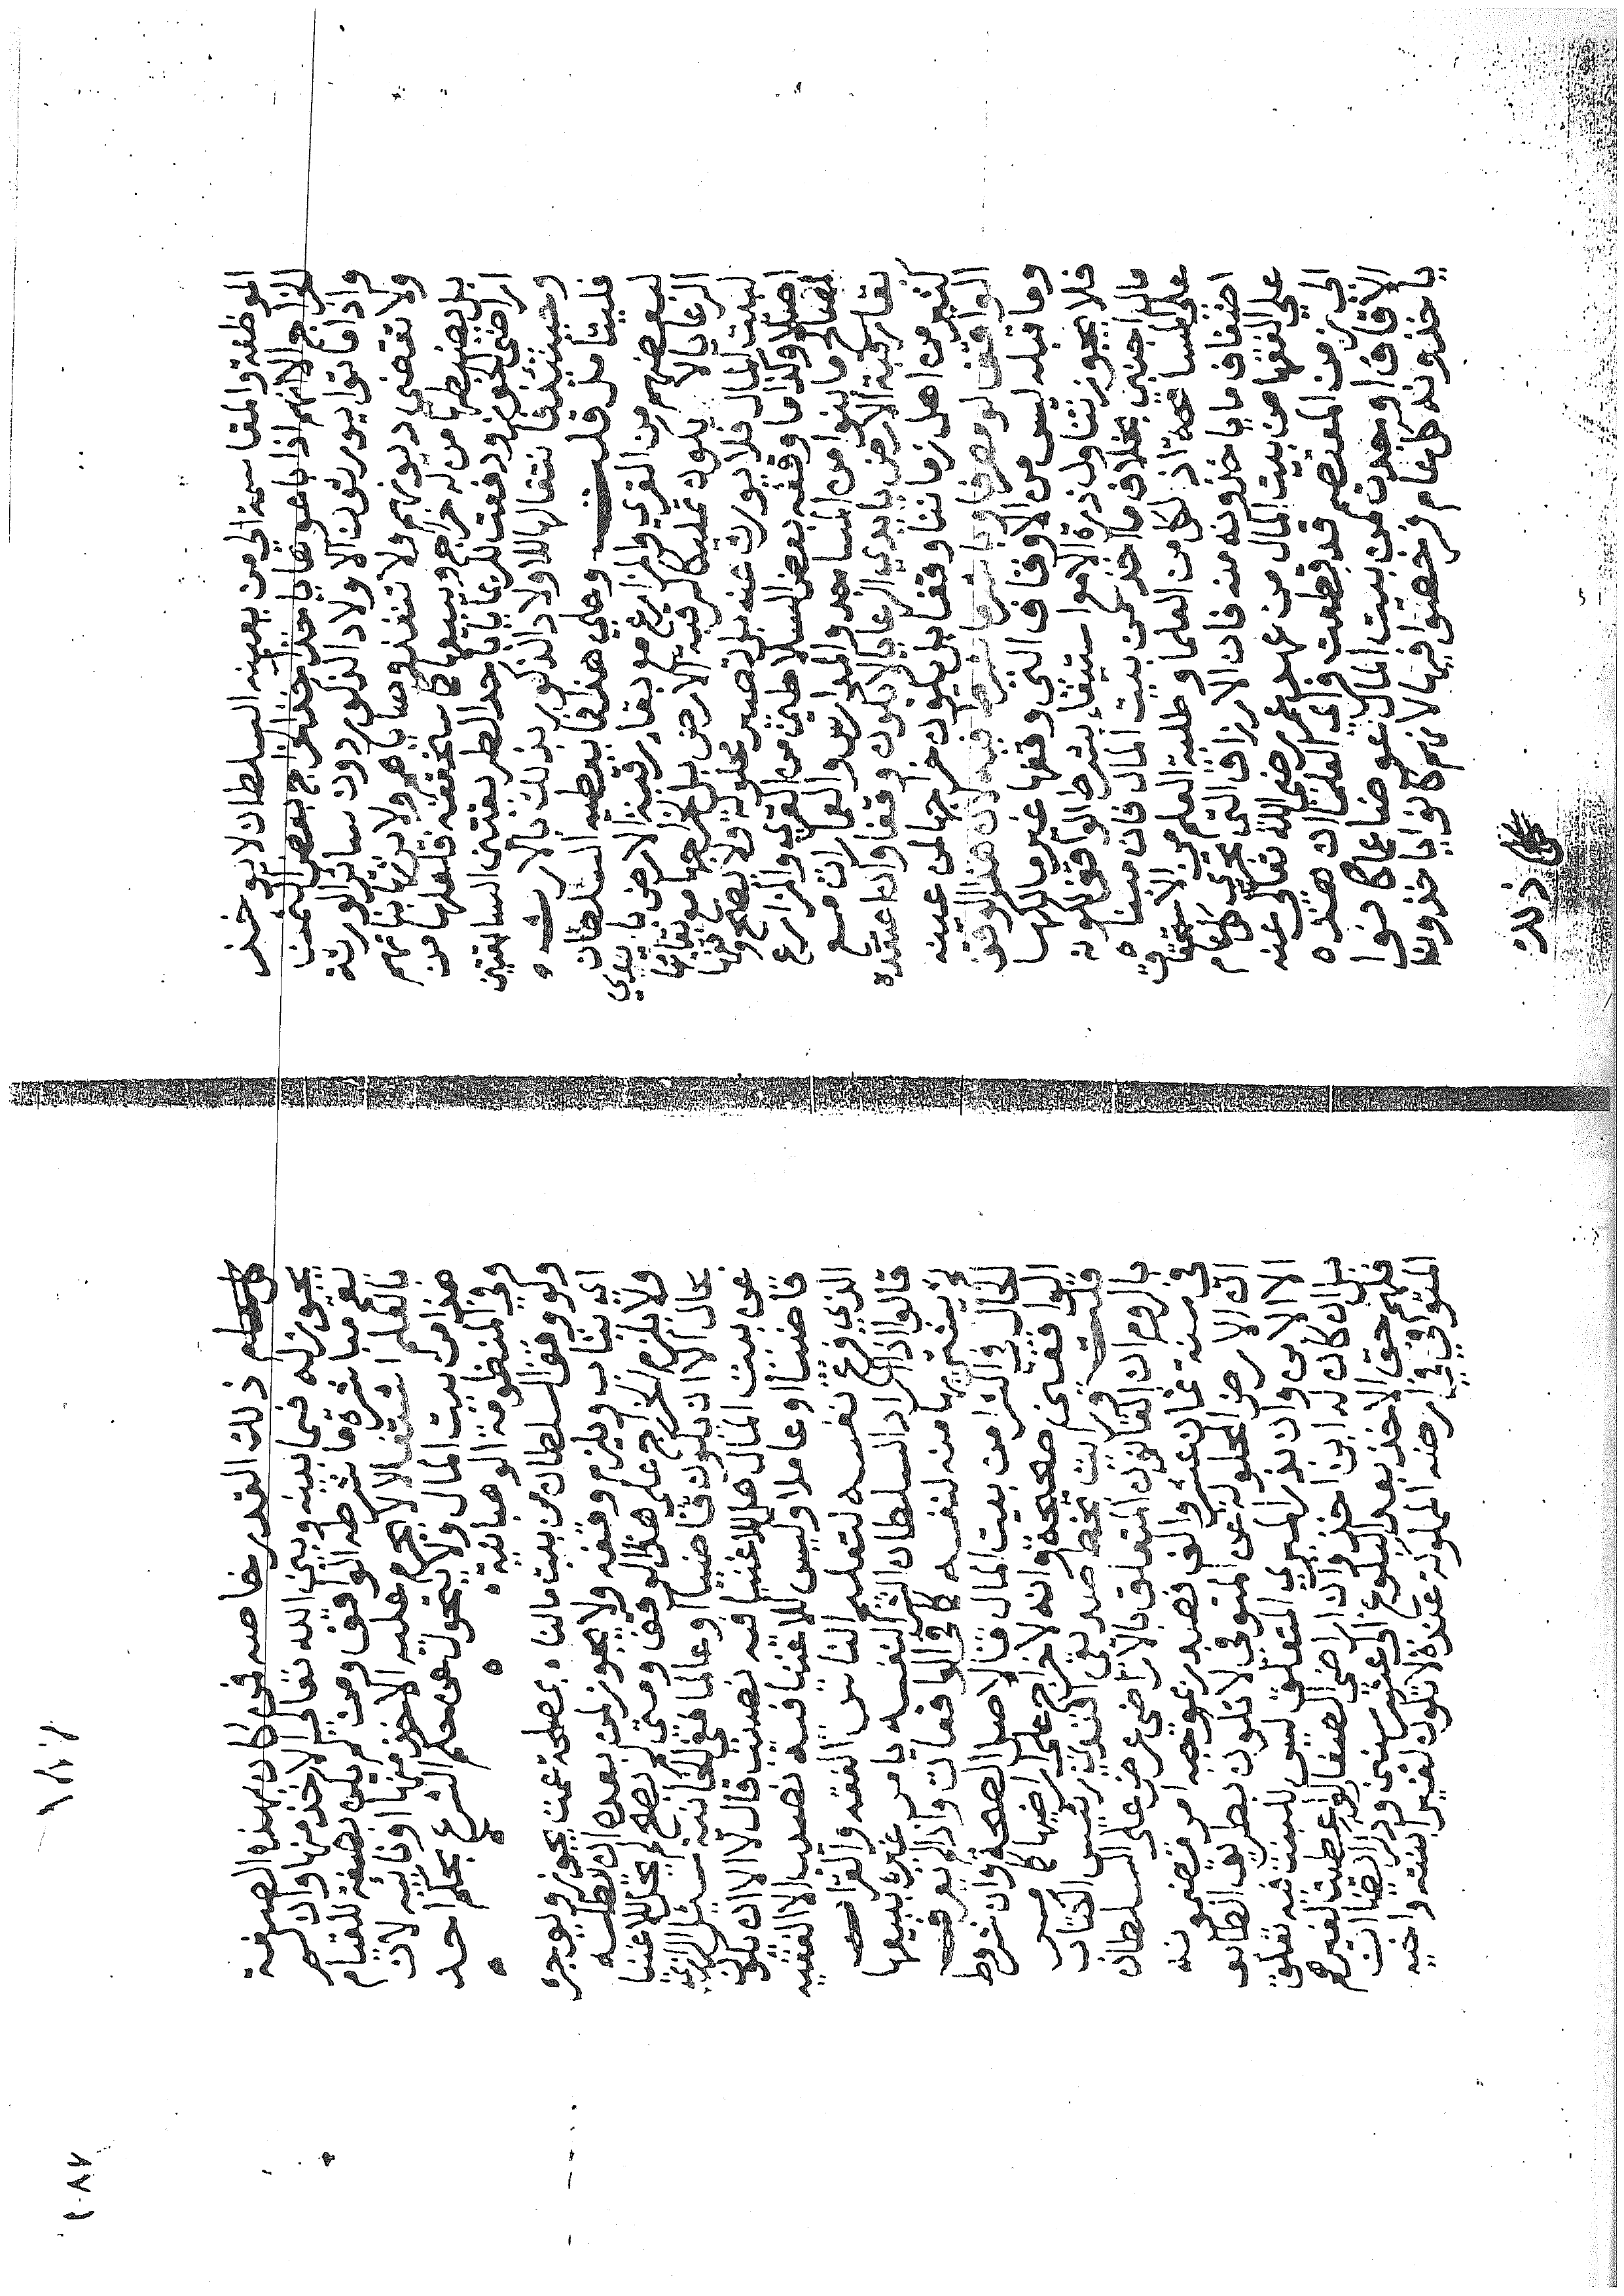 الموظفة والمقاسمة الى من يعينه السلطان لا يوخذ
الخراج الا منهم اذا باعوها ياخذ اخذ الخراج بعض الثمن
واذا ماتوا يورثون الاولاد الذكور دون سائر الورثة
ولا تقضى ديونهم ولا تنفذ وصاياهم ولا يرثها بناتهم
بل يضبطها من له خراج ويبيعها كما سنحققه فلعلها من
اراضى الحوز ودفعت للرعايا باحد الطريقتين السابقتين
وحينئذ فانتقالها للاولاد الذكور بذلك بالارث
فليتامل قلت وعلى هذا فما يعطيه السلطان
لبعضهم من القرى والمزارع مع بقاء رقبة الارض بايدي
الرعايا لا يكون تمليكا لرقبة الارض بل لخراجها مع بقائها
لبيت المال فلا يورث عنه بل تصير محلولة ولا يصح وقفها
اصلا وكذا ما وقفه بعض السلاطين من القرى والمزارع
لمصالح ما بنوا من المساجد والمدارس والعمارات مع
بقاء رقبة الارض بايدي الرعايا لا يكون وقفا وان اعتقده
كثير من اهل زماننا وقفا بل يكون خراجها لمن عينه
الواقف لو مصرفا وباشر ما شرط فيه لان هذا الوقف
وما قبله ليس من الاوقاف التي وقفها غير مالكها
فلا يجوز تناول ذرة الا باستيفاء شرط الواقف لكونه
مال اجنبي بخلاف ما اخذ من بيت المال فان مبناه
على المسامحة اذ لكل من العلما وطلبة العلم من الاستحقاق
اضعاف ما ياخذونه منه فان الارزاق التي تجري كل عام
على الفقها من بيت المال من عهد عمر رضي الله تعالى عنه
الى زمن المعتصم قد قطعت فراى العلما ان هذه
الاوقاف اوجدت من بيت المال عوضا عما كانوا
ياخذونه كل عام فرخصوا فيها لانهم كانوا ياخذون
على ذلك
ذلك القدر خاصه فمن كان بهذه الصفة
يجوز له فيما بينه وبين الله تعالى الاخذ منها وان لم
يقم بمباشرة ما شرطه الواقف ومن لم يكن بصفة للقيام
بالعلم اشتغالا يحرم عليه الاخذ منها لان
هذا من بيت المال ولا يتحول عن حكم الشرع بحكم احد
وفي المنظومة الوهبانية
ولو وقف السلطان من بيت مالنا لمصلحة عمت يجوز ويوجر
اي يثاب ويلزم وقفه ولا يجوز لمن بعده ان يبطله
ولا يلزم الخراج على هذا الوقف ومتى لم يصح لم يحل للاغنيا
بحال الا ان يكون قاضيا او عالما ففي الخانية سئل الرازي
عن بيت المال هل للاغنيا فيه نصيب قال لا الا ان يكون
قاضيا او عاملا وليس للاغنيا فيه نصيب الا الفقيه
الذي فرغ نفسه لتعليم الناس الفقه والقران
قالوا اذا اراد السلطان الشرا لنفسه يامر غيره ببيعها
ثم يشتريها منه لنفسه كما في الواقعات واذا لم يعرف
الحال في الشرا من بيت المال فالاصل الصحة وان شروط
الواقفين صحيحة وانه لا خراج على اراضيها كما مر
قلت ورايت بخط صديقي افندي رئيس الكتاب
بالروم ان القانون المتعلق بالاراضي عرض على السلطان
في سنة ثمان عشر والف فصدر بموجبه امر مضمونه
ان الارض المحلولة عن المتوفي لا تكون بطريق الطابو
الا لابن وان الميري المتعلق ليس للبنت فيه تعلق
بل ان كان له ابن اخذ وان اراضي الصغار لو اعطيت لغيرهم
فلهم حق الاخذ بعد البلوغ الى عشر سنين
المتوفي في ارضه المملوكة عنده لا تكون لغير ابنته واخيه